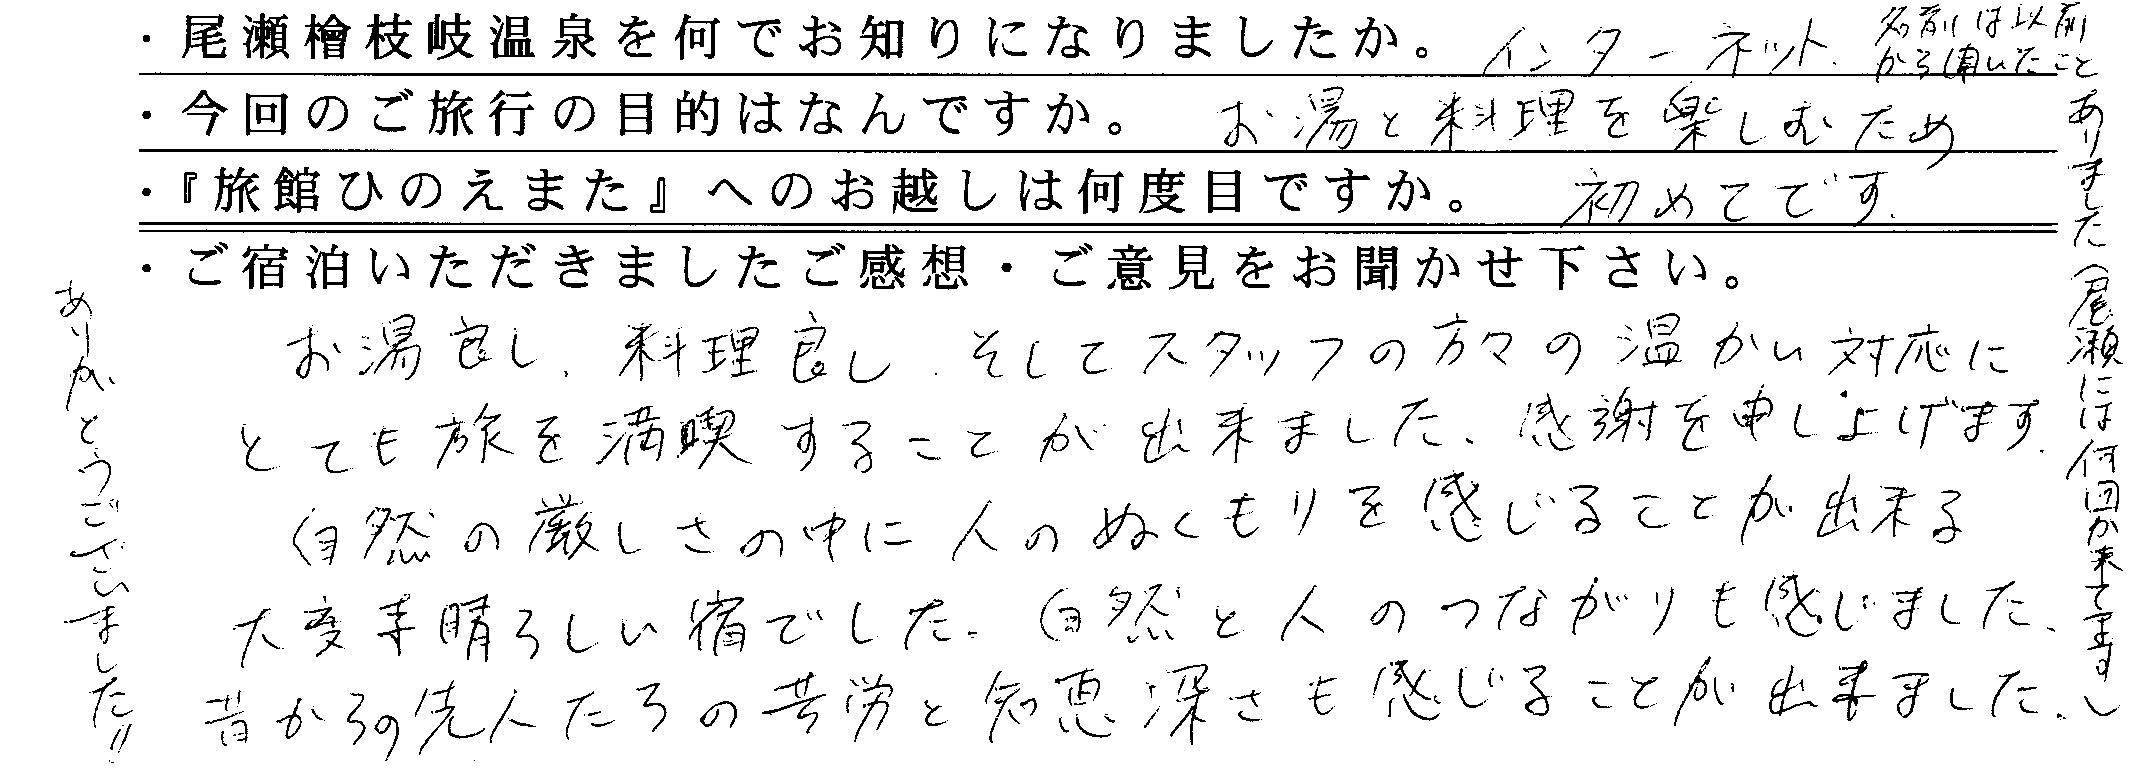 ・尾瀬檜枝岐温泉を何でお知りになりましたか。 インターネット.
名前は以前
から聞いたこと
ありました(尾瀬には何回か来てます)
・今回のご旅行の目的はなんですか。 お湯と料理を楽しむため
・『旅館ひのえまた』へのお越しは何度目ですか。 初めてです.
・ご宿泊いただきましたご感想・ご意見をお聞かせ下さい。
お湯良し、料理良し、そしてスタッフの方々の温かい対応に
とても旅を満喫することが出来ました、感謝を申し上げます.
自然の厳しさの中に人のぬくもりを感じることが出来る
大変素晴らしい宿でした. 自然と人のつながりも感じました、
昔からの先人たちの苦労と知恵深さも感じることが出来ました、
ありがとうございました!!